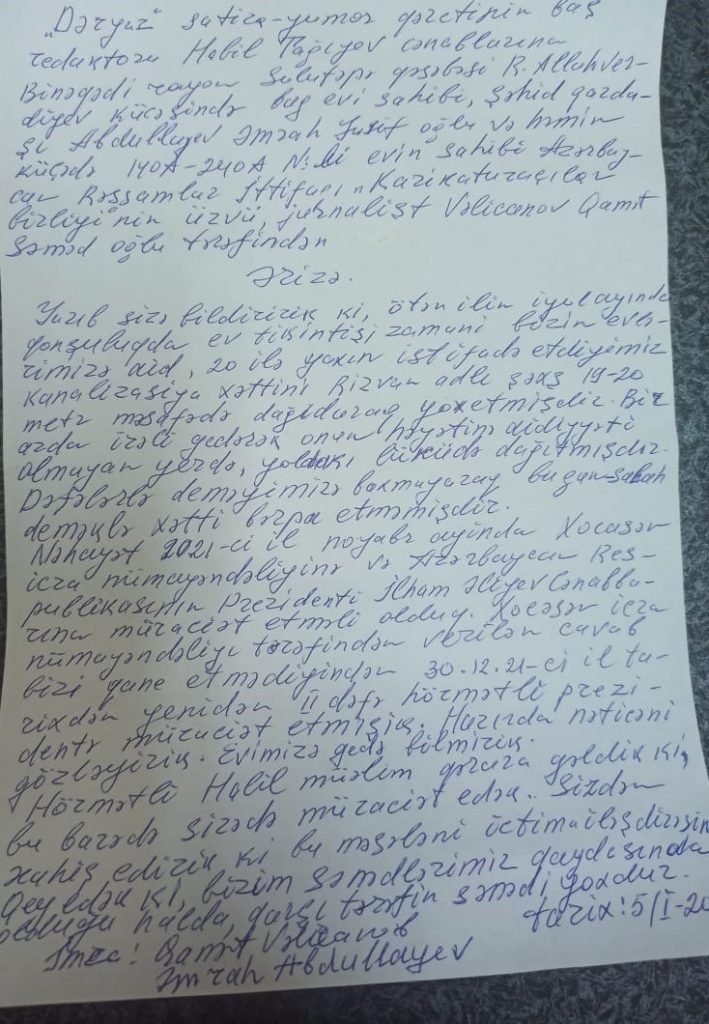 „Dəryaz" satira-yumor qəzetinin baş
redaktoru Habil Tağıyev cənablarına
Binəqədi rayon Sulutəpə qəsəbəsi R. Allahver-
diyev küçəsində bağ evi sahibi, şəhid qarda-
şı Abdullayev Əmrah Yusif oğlu və həmin
küçədə 140A-240A №-li evin sahibi Azərbay-
can Rəssamlar İttifaqı "Karikaturaçılar
birliyi"nin üzvü, jurnalist Vəlicanov Qamət
Səməd oğlu tərəfindən
Ərizə.
Yazıb sizə bildiririk ki, ötən ilin iyul ayında
qonşuluqda ev tikintisi zamanı bizim evlə-
rimizə aid, 20 ilə yaxın istifadə etdiyimiz
kanalizasiya xəttini Rizvan adlı şəxs 19-20
metr məsafədə dağıdaraq yoxetmişdir. Bir
azda irəli gedərək onun həyətinə aidiyyəti
olmayan yerdə, yoldakı lükuda dağıtmışdır.
Dəfələrlə deməyimizə baxmayaraq bugun-sabah
deməklə xətti bərpa etməmişdir.
Nəhayət 2021-ci il noyabr ayında Xocəsən
icra nümayəndəliyinə və Azərbaycan Res-
publikasının Prezidenti İlham Əliyev Cənabla-
rına müraciət etməli olduq. Xocəsən icra
nümayəndəliyi tərəfindən verilən cavab
bizi qane etmədiyindən 30.12.21-ci il ta-
rixdən yenidən II dəfə hörmətli prezi-
dentə müraciət etmişik. Hazırda nəticəni
gözləyirik. Evimizə gedə bilmirik.
Hörmətli Habil müəlim qərara gəldik ki,
bu barədə sizədə müraciət edək. Sizdən
xahiş edirik ki bu məsələni ictimailəşdirəsin
Qeyd edək ki, bizim sənədlərimiz qaydasında
olduğu halda, qarşı tərəfin sənədi yoxdur.
İmza: Qamət Vəlicanov tarix: 5/I-20
Əmrah Abdullayev